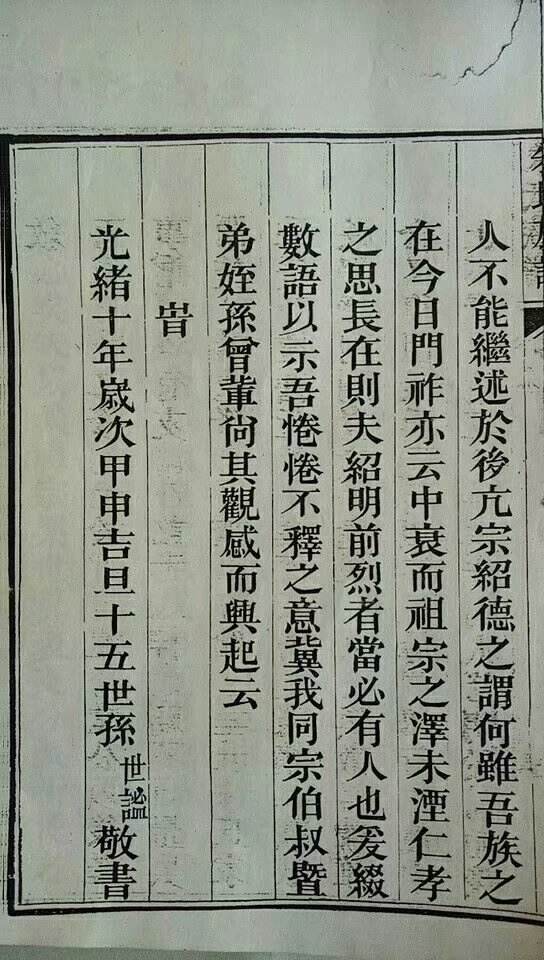 人不能繼述於後亢宗紹德之謂何雖吾族之
在今日門祚亦云中衰而祖宗之澤未湮仁孝
之思長在則夫紹明前烈者當必有人也爰綴
數語以示吾惓惓不釋之意冀我同宗伯叔暨
弟姪孫曾輩尙其觀感而興起云
旹
光緒十年歲次甲申吉旦十五世孫世謐敬書